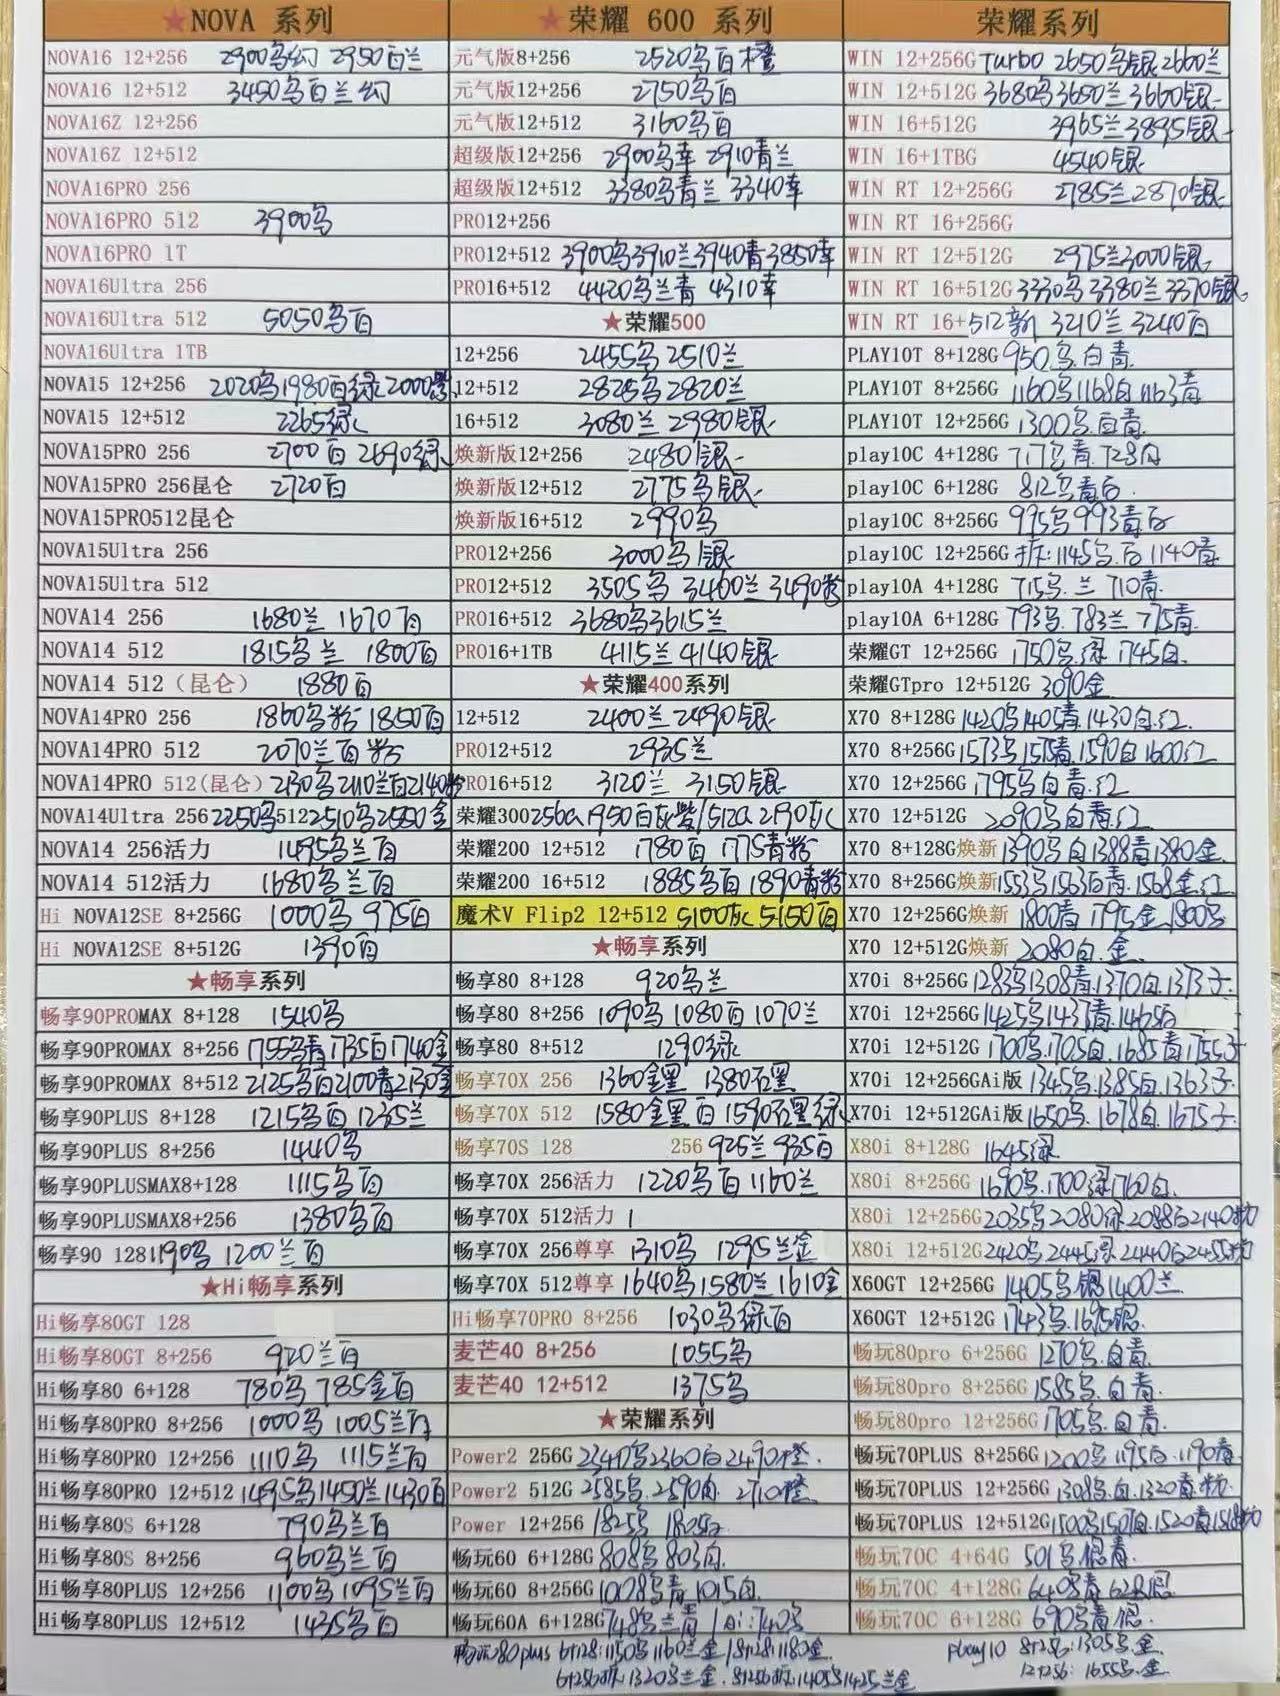 ★NOVA 系列
NOVA16 12+256 2900乌幻 2950白兰
NOVA16 12+512 3450乌白兰幻
NOVA16Z 12+256
NOVA16Z 12+512
NOVA16PRO 256
NOVA16PRO 512 3900乌
NOVA16PRO 1T
NOVA16Ultra 256
NOVA16Ultra 512 5050乌白
NOVA16Ultra 1TB
NOVA15 12+256 2020乌1980白绿2000紫
NOVA15 12+512 2265绿
NOVA15PRO 256 2700白 2690绿
NOVA15PRO 256昆仑 2720白
NOVA15PRO512昆仑
NOVA15Ultra 256
NOVA15Ultra 512
NOVA14 256 1680兰 1670白
NOVA14 512 1815乌兰 1800白
NOVA14 512（昆仑） 1880白
NOVA14PRO 256 1860乌粉 1850白
NOVA14PRO 512 2070兰白粉
NOVA14PRO 512(昆仑) 2130乌2110兰白2140粉
NOVA14Ultra 256 2250乌5122510乌2550金
NOVA14 256活力 1495乌兰白
NOVA14 512活力 1680乌兰白
Hi NOVA12SE 8+256G 1000乌 975白
Hi NOVA12SE 8+512G 1390白
★畅享系列
畅享90PROMAX 8+128 1540乌
畅享90PROMAX 8+256 1755乌青1735白1740金
畅享90PROMAX 8+512 2125乌白2100青2130金
畅享90PLUS 8+128 1215乌白1235兰
畅享90PLUS 8+256 1440乌
畅享90PLUSMAX8+128 1115乌白
畅享90PLUSMAX8+256 1380乌白
畅享90 128 1190乌 1200兰白
★Hi畅享系列
Hi畅享80GT 128
Hi畅享80GT 8+256 920兰白
Hi畅享80 6+128 780乌 785金白
Hi畅享80PRO 8+256 1000乌 1005兰白
Hi畅享80PRO 12+256 1110乌 1115兰白
Hi畅享80PRO 12+512 1495乌1450兰1430白
Hi畅享80S 6+128 790乌兰白
Hi畅享80S 8+256 960乌兰白
Hi畅享80PLUS 12+256 1100乌 1095兰白
Hi畅享80PLUS 12+512 1435乌白
★荣耀 600 系列
元气版8+256 2520乌白橙
元气版12+256 2750乌白
元气版12+512 3160乌白
超级版12+256 2900乌幸 2910青兰
超级版12+512 3380乌青兰 3340幸
PRO12+256
PRO12+512 3900乌3910兰3940青3850幸
PRO16+512 4420乌兰青 4310幸
★荣耀500
12+256 2455乌 2510兰
12+512 2825乌 2820兰
16+512 3080兰 2980银
焕新版12+256 2480银
焕新版12+512 2775乌银
焕新版16+512 2990乌
PRO12+256 3000乌银
PRO12+512 3505乌 3460兰 3490粉
PRO16+512 3680乌3615兰
PRO16+1TB 4115兰 4140银
★荣耀400系列
12+512 2400兰 2490银
PRO12+512 2935兰
PRO16+512 3120兰 3150银
荣耀300256G1950白灰紫/512G 2190灰
荣耀200 12+512 1780白 1775青粉
荣耀200 16+512 1885乌白 1890青粉
魔术V Flip2 12+512 5100灰 5150白
★畅享系列
畅享80 8+128 920乌兰
畅享80 8+256 1090乌 1080白 1070兰
畅享80 8+512 1290绿
畅享70X 256 1360金黑 1380石黑
畅享70X 512 1580金黑白 1590石黑绿
畅享70S 128 256 925兰 935白
畅享70X 256活力 1220乌白 1160兰
畅享70X 512活力 1
畅享70X 256尊享 1310乌 1295兰金
畅享70X 512尊享 1640乌1580兰 1610金
Hi畅享70PRO 8+256 1030乌绿白
麦芒40 8+256 1055乌
麦芒40 12+512 1375乌
★荣耀系列
Power2 256G 2347乌2360白2490橙.
Power2 512G 2585乌.2590白. 2710橙.
Power 12+256 1825乌 1805白.
畅玩60 6+128G 808乌 803白.
畅玩60 8+256G 1008乌青 1015白.
畅玩60A 6+128G 748乌兰青 / Ai:740乌
畅玩80plus 6+128:1150乌1160兰金 /8+128:1180金.
6+256拆:1320乌兰金. 8+256拆:1405乌1425兰金
荣耀系列
WIN 12+256G Turbo 2650乌银2660兰
WIN 12+512G 3680乌3650兰3660银
WIN 16+512G 3965兰3895银
WIN 16+1TBG 4540银
WIN RT 12+256G 2785兰2870银
WIN RT 16+256G
WIN RT 12+512G 2975兰3000银
WIN RT 16+512G 3330乌3380兰3370银
WIN RT 16+512新 3210兰 3240白
PLAY10T 8+128G 950乌.白青.
PLAY10T 8+256G 1160乌1168白1163青
PLAY10T 12+256G 1300乌.白青.
play10C 4+128G 717乌青.728白
play10C 6+128G 812乌青白.
play10C 8+256G 995乌993青白
play10C 12+256G 拆:1145乌.白1140青
play10A 4+128G 715乌.兰 710青.
play10A 6+128G 793乌.783兰775青.
荣耀GT 12+256G 1750乌.绿 1745白.
荣耀GTpro 12+512G 3090金
X70 8+128G 1420乌1405青.1430白.红
X70 8+256G 1573乌1575青.1590白1600红
X70 12+256G 1795乌白青.红
X70 12+512G 2090乌白青.红
X70 8+128G焕新 1390乌.白1388青1380金.
X70 8+256G焕新 1553乌1563白青.1568金.红
X70 12+256G焕新 1800青 1795金.1800乌
X70 12+512G焕新 2080白.金.
X70i 8+256G 1283乌1308青.1370白.1373子.
X70i 12+256G 1425乌1437青.1465白
X70i 12+512G 1700乌.1705白.1685青1755子
X70i 12+256GAi版 1345乌.1385白.1363子.
X70i 12+512GAi版 1650乌.1678白.1675子.
X80i 8+128G 1645绿
X80i 8+256G 1690乌.1700绿1760白.
X80i 12+256G 2035乌2080绿2088白2140粉
X80i 12+512G 2420乌2445绿2440白2455粉
X60GT 12+256G 1405乌.银1400兰
X60GT 12+512G 1743乌.1695银.
畅玩80pro 6+256G 1270乌.白青.
畅玩80pro 8+256G 1585乌.白青.
畅玩80pro 12+256G 1705乌.白青.
畅玩70PLUS 8+256G 1200乌1195白.1190青
畅玩70PLUS 12+256G 1308乌.白.1320青.粉.
畅玩70PLUS 12+512G 1500乌1507白.1520青.1518粉
畅玩70C 4+64G 501乌.银青.
畅玩70C 4+128G 640乌青 628银.
畅玩70C 6+128G 690乌青银.
play10 8+256:1305乌.金
12+256: 1655乌.金